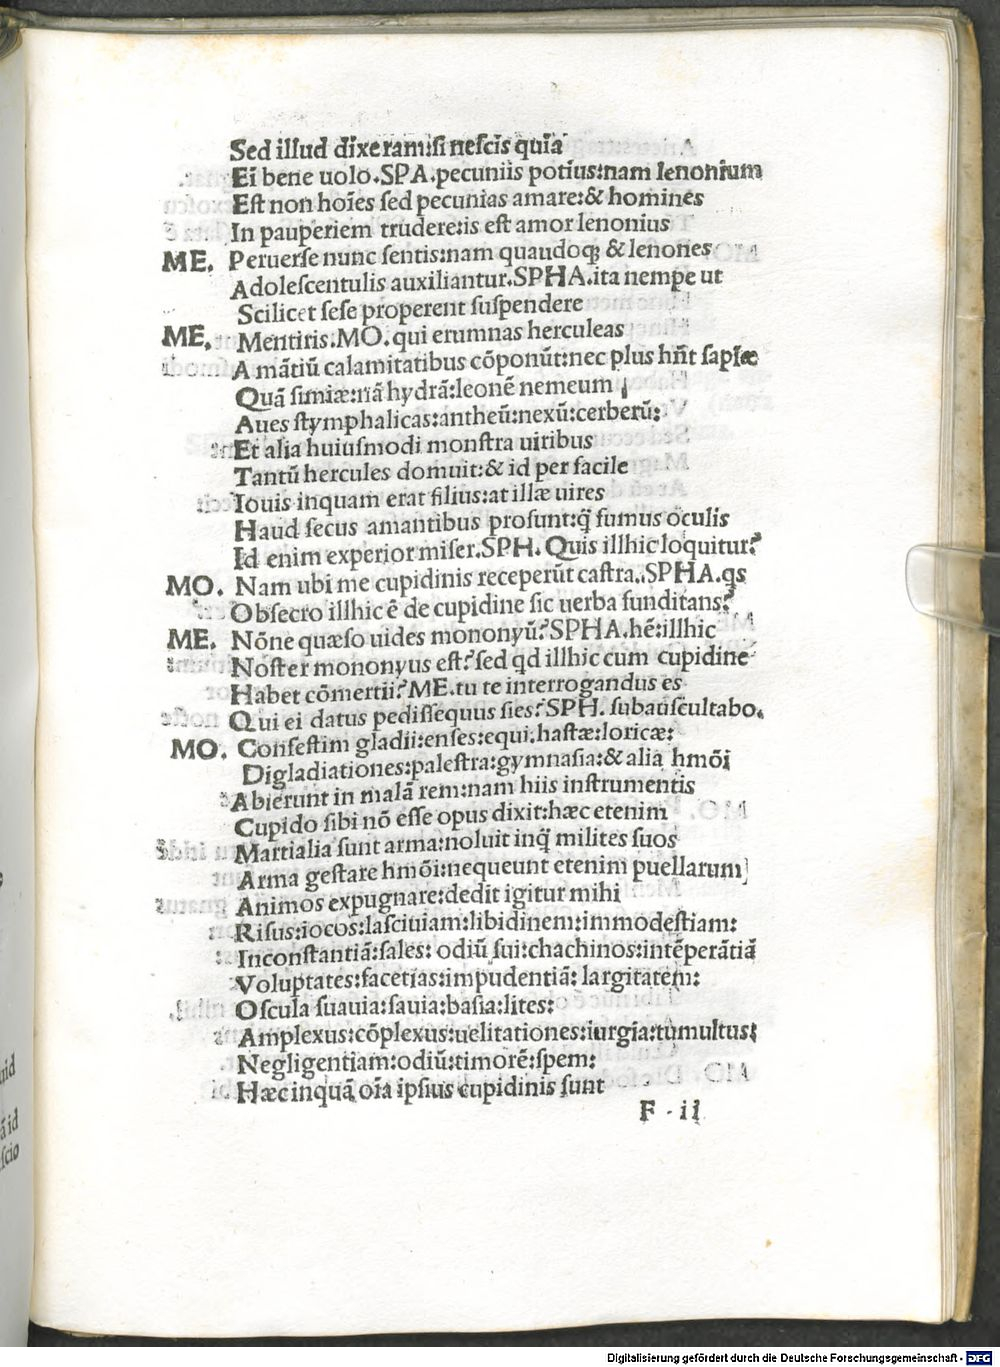 Sed illud dixeram:si nescis quia
Ei bene uolo.SPA.pecuniis potius:nam lenonium
Est non hoīes sed pecunias amare:& homines
In pauperiem trudere:is est amor lenonius
ME. Peruerse nunc sentis:nam quaudoq; & lenones
Adolescentulis auxiliantur.SPHA.ita nempe ut
Scilicet sese properent suspendere
ME. Mentiris.MO.qui erumnas herculeas
A mātiū calamitatibus cōponūt:nec plus hn̄t sapiæ
Quā simiæ:nā hydrā:leonē nemeum
Aues stymphalicas:antheū:nexū:cerberū:
Et alia huiusmodi monstra uiribus
Tantū hercules domuit:& id per facile
Iouis inquam erat filius:at illæ uires
Haud secus amantibus prosunt:q̄ fumus oculis
Id enim experior miser.SPH.Quis illhic loquitur?
MO. Nam ubi me cupidinis receperūt castra.SPHA.qs
Obsecro illhic ē de cupidine sic uerba funditans?
ME. Nōne quæso uides mononyū?SPHA.hē:illhic
Noster mononyus est?sed qd illhic cum cupidine
Habet cōmertii?ME.tu te interrogandus es
Qui ei datus pedissequus sies?SPH. subauscultabo.
MO. Confestim gladii:enses:equi:hastæ:loricæ:
Digladiationes:palestra:gymnasia:& alia hmōi
Abierunt in malā rem:nam hiis instrumentis
Cupido sibi nō esse opus dixit:hæc etenim
Martialia sunt arma:noluit inq̄ milites suos
Arma gestare hmōi:nequeunt etenim puellarum
Animos expugnare:dedit igitur mihi
Risus:iocos:lasciuiam:libidinem:immodestiam:
Inconstantiā:sales: odiū sui:chachinos:intēperātiā
Voluptates:facetias:impudentiā: largitatem:
Oscula suauia:sauia:basia:lites:
Amplexus:cōplexus:uelitationes:iurgia:tumultus:
Negligentiam:odiū:timorē:spem:
Hæc inquā oīa ipsius cupidinis sunt
F ii
uid
ā id
scio
Digitalisierung gefördert durch die Deutsche Forschungsgemeinschaft - DFG